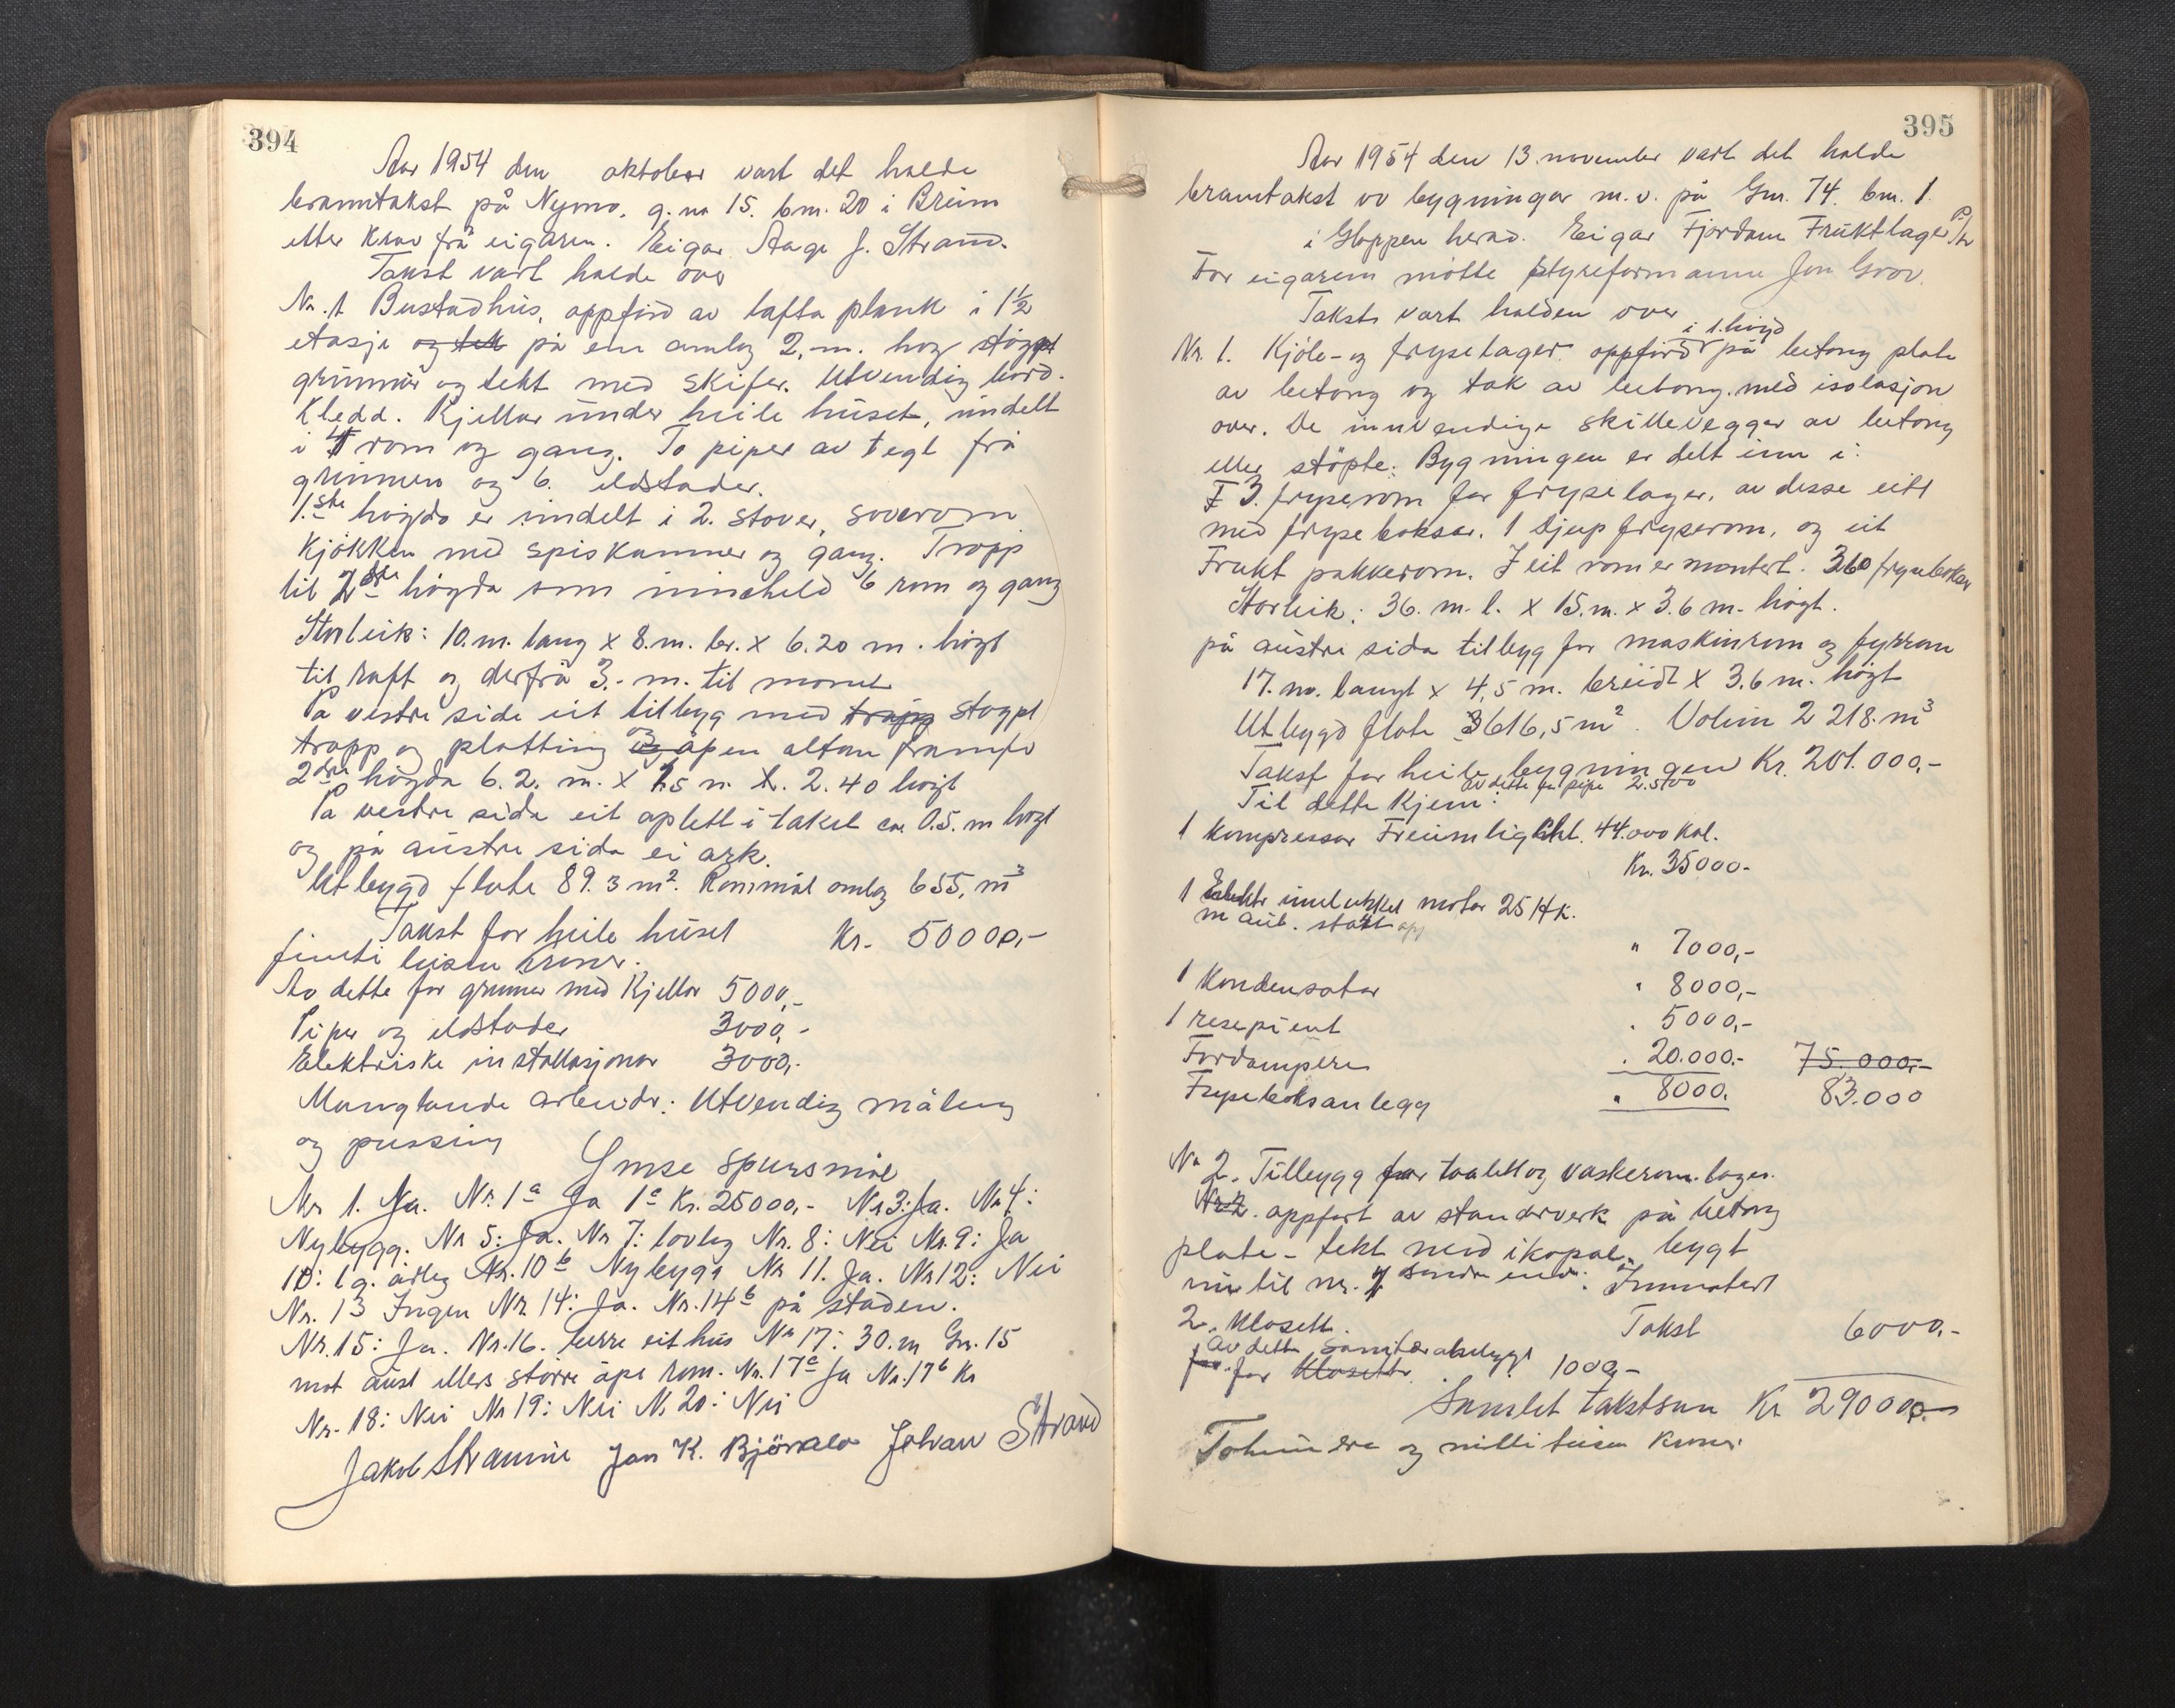 394
Aar 1954 den oktober vart det halde
branntakst på Nymo, g.nr 15. bnr. 20 i Breim
etter krav frå eigaren. Eigar Aage J. Strand.
Takst vart halde over
Nr. 1 Bustadhus, oppförd av lafta plank i 1½
etasje og tek på ein omlag 2,-m. hog støypt
grunnmur og tekt med skifer. Utvendig bord-
kledd. Kjellar under heile huset, indelt
i 4 rom og gang. To piper av tegl frå
grunnen og 6. eldstader.
1.ste högda er inndelt i 2. stover, soverom
kjökken med spiskammer og gang. Tropp
til 2dre högda som inneheld 6 rom og gang
Storleik: 10.m. lang x 8.m. br. x 6.20 m. högt
til raft og derfrå 3.- m. til mønet
På vestre side eit tilbygg med trapp støypt
tropp og platting og åpen altan framfor
2dre högda 6.2. m. x 1.5 m. h. 2.40 högt
På vestre side eit oplett i taket ca 0.5. m högt
og på austre sida ei ark.
Utbygd flate 89.3 m². Rommål omlag 655, m³
Takst for heile huset Kr. 50000,-
femti tusen kroner.
Av dette for grunnmur med kjellar 5000,-
Piper og eldstader 3000,-
Elektriske installasjonar 3000,-
Manglande arbeider: Utvendig måling
og pussing
Ymse spursmål
Nr 1. Ja. Nr. 1a Ja 1c Kr. 25000,- Nr 3: Ja. Nr 4:
Nybygg. Nr 5: Ja. Nr 7: lovleg Nr. 8: Nei Nr. 9: Ja
10: 1 g. årleg Nr. 10b Nybygg Nr 11. Ja. Nr 12: Nei
Nr. 13 Ingen Nr 14: Ja. Nr. 14b på staden.
Nr. 15: Ja. Nr. 16. berre eit hus Nr 17: 30.m Gnr. 15
mot aust ellers större åpe rom. Nr. 17a Ja Nr. 17b Kr
Nr. 18: Nei Nr 19: Nei Nr 20: Nei
Jakob Jon K. Johan Strand
395
Aar 1954 den 13. november vart det halde
branntakst ov bygningar m.v. på Gnr. 74. bnr. 1.
i Gloppen herad. Eigar Fjordane Fruktlager P/L
For eigaren møtte styreformannen Jon Grov.
Takst vart halden over
i 1. högd
Nr. 1. Kjöle- og fryselager oppförd på betong plate
av betong og tak av betong med isolasjon
over. De innvendige skillevegger av betong
eller støpte. Bygningen er delt inn i:
3. fryserom for fryselager, av desse eitt
med frysebokser. 1 djup fryserom, og eit
Frukt pakkerom. I eit rom er montert 360 frysebokser
Storleik: 36. m. l. x 15.m. x 3.6 m. högt.
på austre sida tilbyg for maskinrom og fyrrom
17. m. langt x 4,5 m. breidt x 3.6 m. högt
Utbygd flate 616,5 m². Volum 2 218. m³
Takst for heile bygningen Kr. 201.000,-
av dette for pipe 2.500
Til dette kjem:
1 kompressor 44.000 kal.
Kr. 35000.-
1 Elektr innelukket motor 25 Hk.
m aut. start app
" 7000,-
1 Kondensator " 8000,-
1 resepient " 5000,-
Fordampere " 20.000.- 75.000,-
Fryseboksanlegg " 8000. 83.000
Nr 2. Tilbygg for toalett og vaskerom. lager.
Nr 2. oppfort av standerverk på betong
plate - tekt med ikopal, bygt
inn til nr. 1 søndre ende. Innmontert
2. Klosett. Takst 6000,-
Av dette sanitæranlegg
for for Klosetter 1000,-
Samlet takstsum Kr 290000.-
Tohundre og nitti tusen kroner